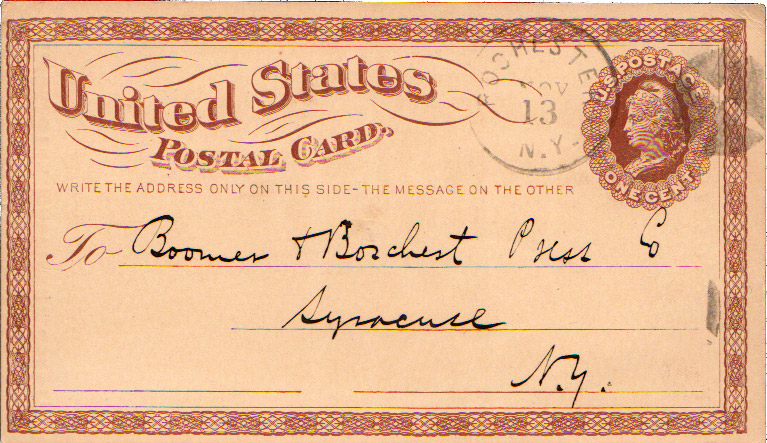 United States
POSTAL CARD.
WRITE THE ADDRESS ONLY ON THIS SIDE-THE MESSAGE ON THE OTHER
U.S. POSTAGE
ONE CENT
ROCHESTER
NOV
13
N.Y.
To Boomer & Boschest Press Co
Syracuse
N.Y.